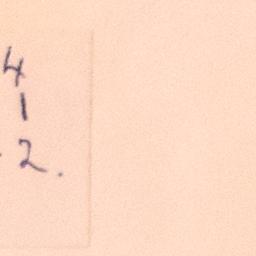 4
1
2.